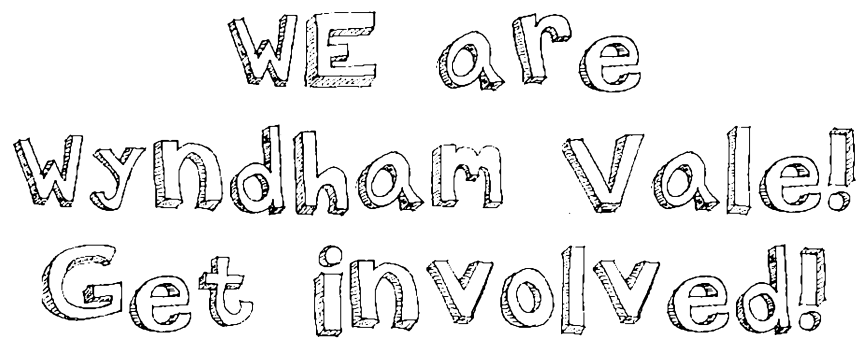 WE are
Wyndham Vale!
Get involved!